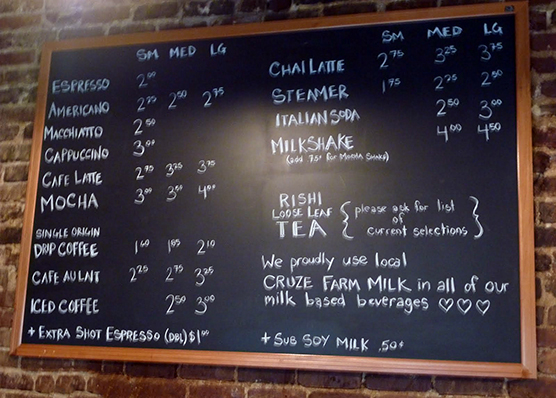 SM MED LG
ESPRESSO 2.00
AMERICANO 2.25 2.50 2.75
MACCHIATTO 2.50
CAPPUCCINO 3.00
CAFE LATTE 2.75 3.25 3.75
MOCHA 3.00 3.50 4.00
SINGLE ORIGIN
DRIP COFFEE 1.60 1.85 2.10
CAFE AU LAIT 2.25 2.75 3.25
ICED COFFEE 2.50 3.00
+ EXTRA SHOT ESPRESSO (DBL) $1.00
SM MED LG
CHAI LATTE 2.75 3.25 3.75
STEAMER 1.75 2.25 2.50
ITALIAN SODA 2.50 3.00
MILKSHAKE 4.00 4.50
(add .75¢ for Mocha Shake)
RISHI
LOOSE LEAF
TEA
{please ask for list
of
current selections}
We proudly use local
CRUZE FARM MILK in all of our
milk based beverages ♡♡♡
+ SUB SOY MILK .50¢